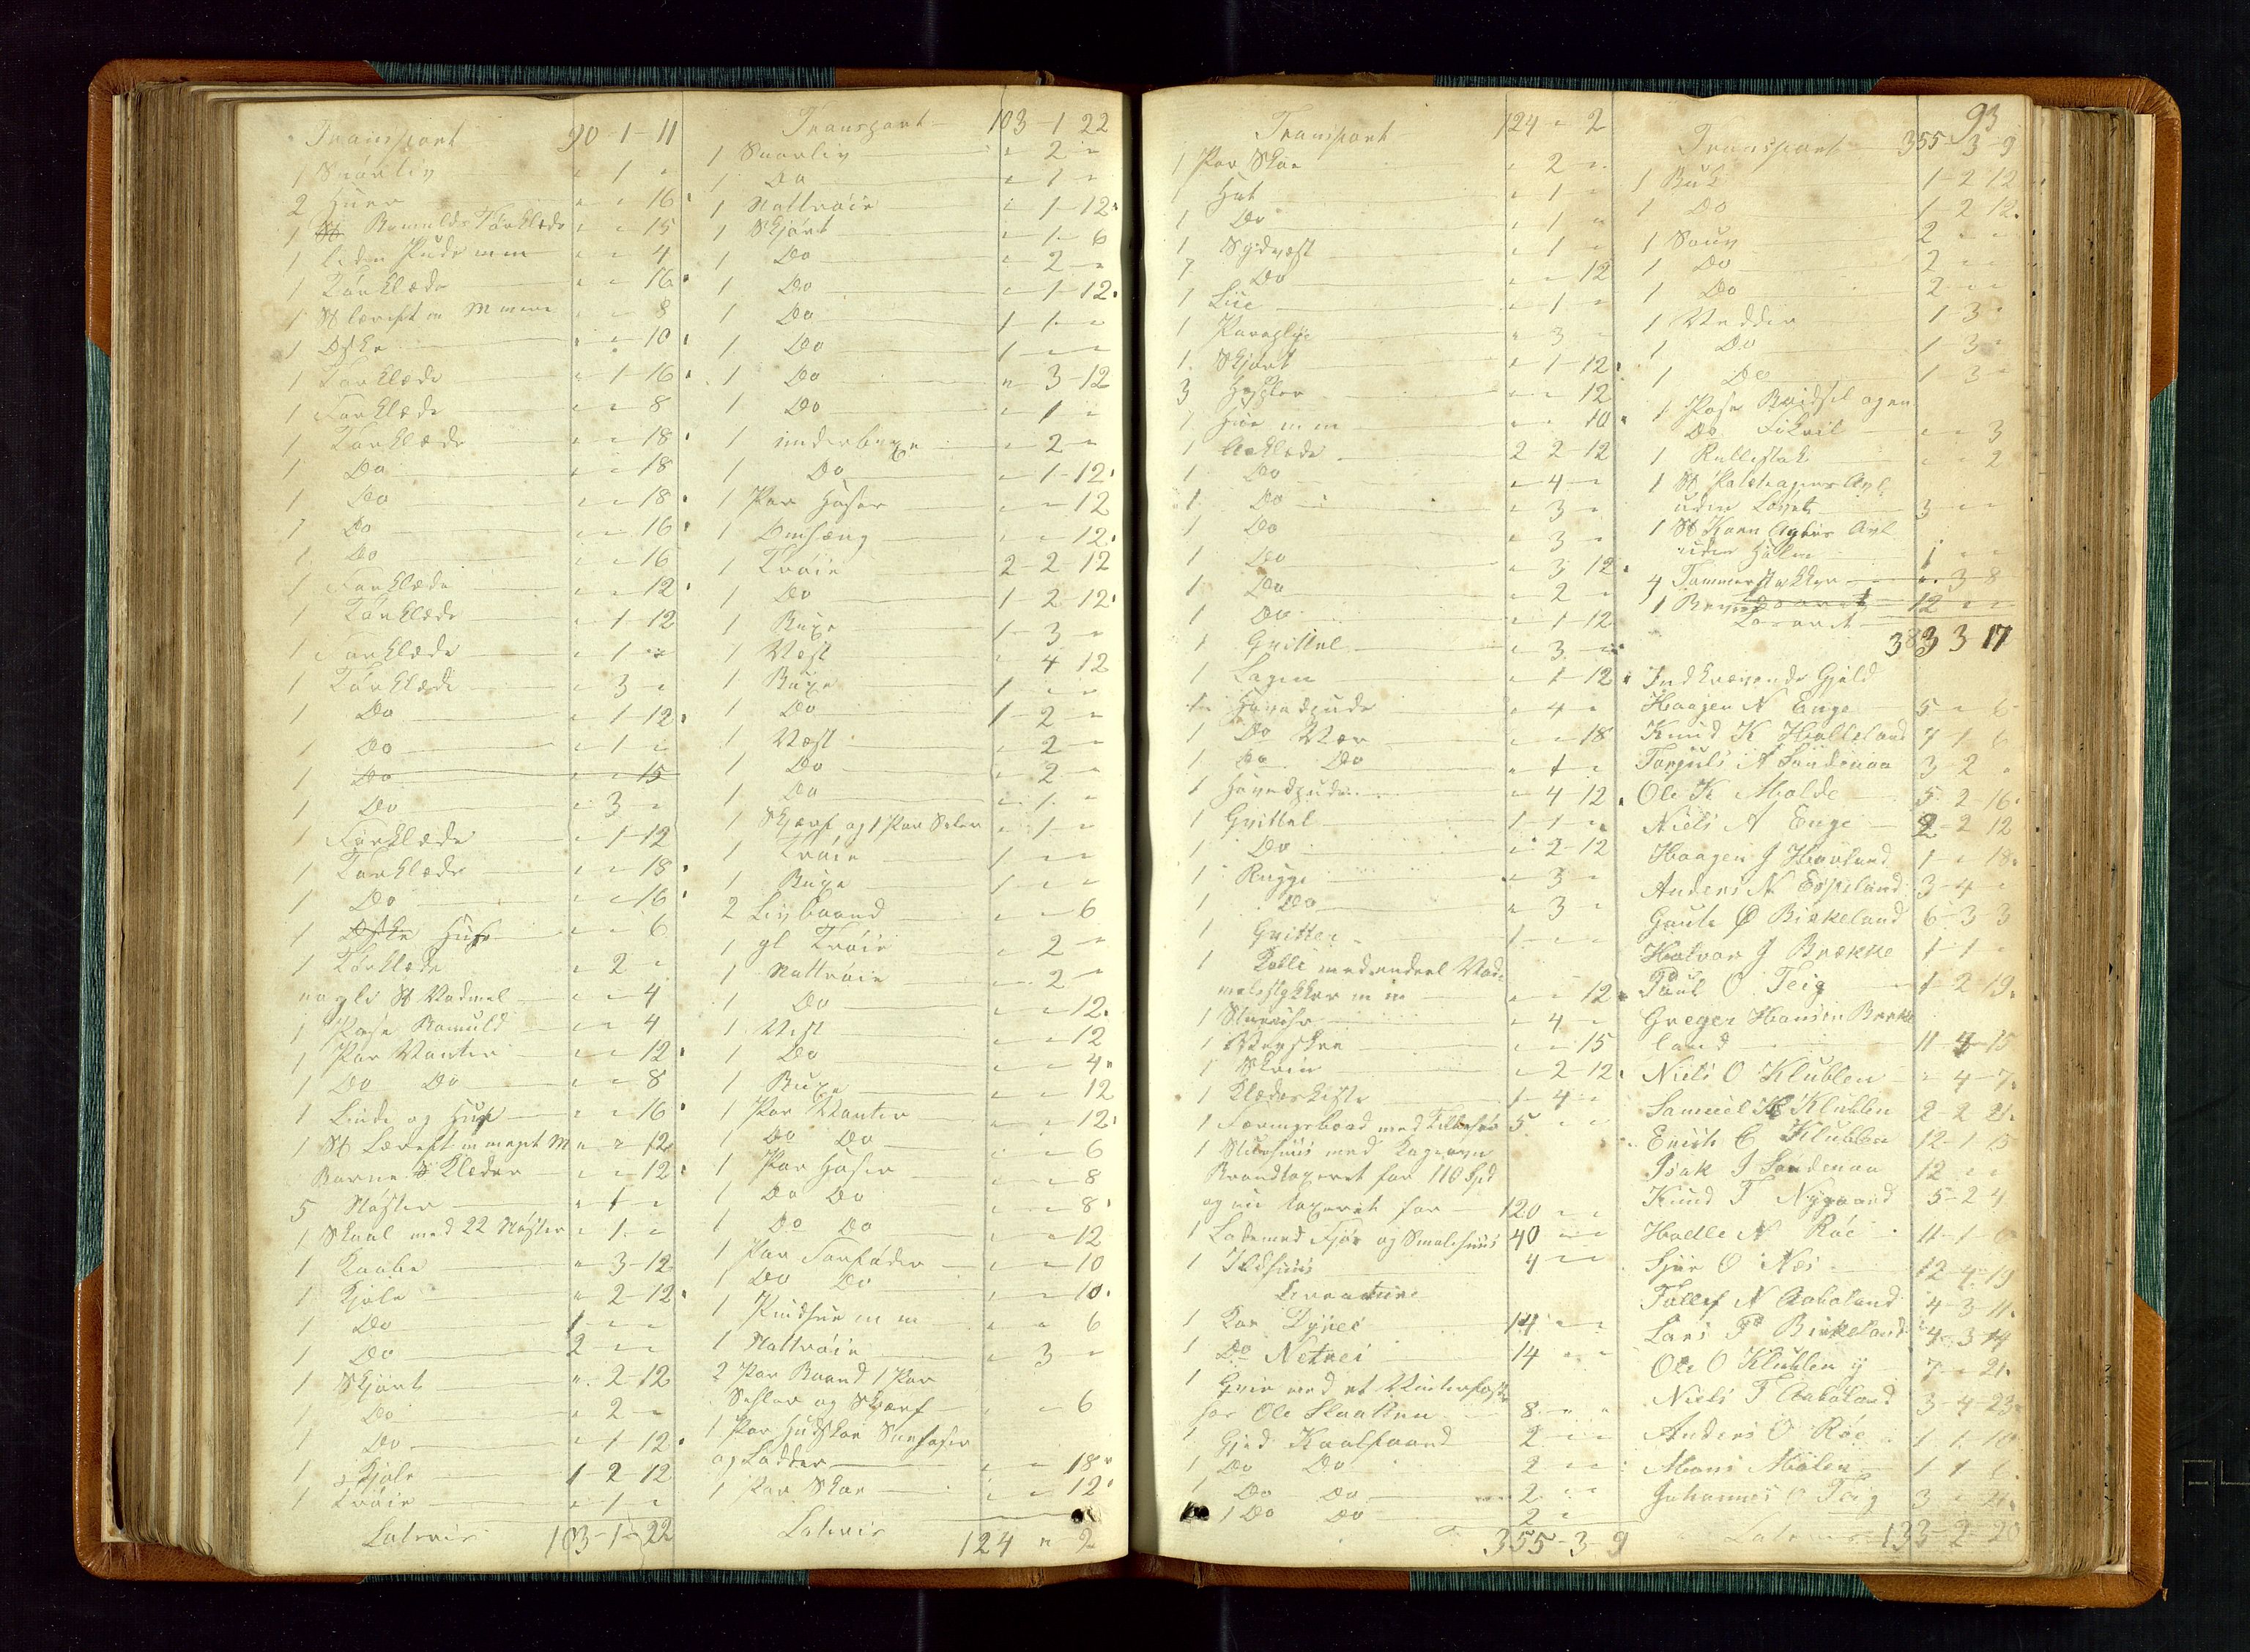 Transport 90-1-11
1 Snørliv " 1 "
2 Huer " " 16
1 St Bomulds Tørklæde " " 15
1 liden Pude mm " " 4
1 Tørklæde " " 16
1 St lærept m m " " 8
1 Eske " " 10
1 Tørklæde " 1 16
1 Forklæde " " 8
1 Tørklæde " " 18
1 Do " " 18
1 Do " " 18
1 Do " " 16
1 Do " " 16
1 Forklæde " " 12
1 Tørklæde " 1 12
1 Forklæde " 1 "
1 Tørklæde " 3 "
1 Do " 1 12
1 Do " 1 "
1 Do " " 15
1 Do " 3 "
1 Forklæde " 1 12
1 Tørklæde " " 18
1 Do " " 16
1 Hue " " 6
1 Tørklæde " 2 "
nogle St Vadmel " " 4
1 Pose Bomuld " " 4
1 Par Vanter " " 12
1 Do Do " " 8
1 Linde og Hue " " 16
1 St Lærept m meget M " " 12
Barne Klæder " " 12
5 Nøster " 1 "
1 Skaal med 22 Nøster " 1 "
1 Kaabe " 3 12
1 Kjole " 2 12
1 Do 1 " "
1 Do 2 " "
1 Skjørt " 2 12
1 Do " 2 "
1 Do " 1 12
1 Kjole 1 2 12
1 Trøie " 1 "
Lateris 103-1-22
Transport 103-1 22
1 Snorliv " 2 "
1 Do " 1 "
1 Nattrøie " 1 12
1 Skjørt " 1 6
1 Do " 2 "
1 Do " 1 12
1 Do 1 1 "
1 Do 1 " "
1 Do " 3 12
1 Do " 1 "
1 underbuxe " 2 "
1 Do " 1 12
1 Par Hoser " " 12
1 Omhæng " " 12
1 Trøie 2 2 12
1 Do 1 2 12
1 Buxe 1 3 "
1 Vest " 4 12
1 Buxe 1 " "
1 Do 1 2 "
1 Vest " 2 "
1 Do " 2 "
1 Do " 1 "
1 Skjærf og 1 Par Seler " 1 "
1 Trøie 1 " "
1 Buxe 1 " "
2 Livbaand " " 6
1 gl Trøie " 2 "
1 Nattrøie " 2 "
1 Do " " 12
1 Vest " " 12
1 Do " " 4
1 Buxe " " 12
1 Par Vanter " " 12
1 Do Do " " 6
1 Par Hoser " " 8
1 Do Do " " 8
1 Do Do " " 12
1 Par Forføder " " 10
1 Do Do " " 10
1 Pudshue m m " " 6
1 Nattrøie " 3 "
2 Par Baand 1 Par
Seler og Skjærf " " 6
1 Par Hudskoe
og Ladder " " 18
1 Par Skoe " " 12
Lateris 124 " 2
Transport 124 " 2
1 Par Skoe " 2 "
1 Hat " 1 "
1 Do " 1 "
1 Sydvest " 1 "
1 Do " " 12
1 Lue " 1 "
1 Paraplye " 3 "
1 Skjørt " 1 12
3 Hegler " " 12
1 Hue m m " " 10
1 Aaklæde 2 2 12
1 Do " 4 "
1 Do " 3 "
1 Do " 3 "
1 Do " 3 12
1 Do " 2 "
1 Do " 1 12
1 Gvittel " 3 "
1 Lagen " 1 12
1 Hovedpude " 4 "
1 Do Vær " " 18
1 Do Do " 1 "
1 Hovedpude " 4 12
1 Gvittel 1 1 "
1 Do " 2 12
1 Rugge " 3 "
1 Do " 3 "
1 Gvittel 1 " "
1 Kolle med endeel Vad
melsstykker m m " " 12
1 " 4 "
1 " " 15
1 Skrin " 2 12
1 Klædeskiste 1 4 "
1 Færingsbaad med Tilbehør 5 " "
1 Stuehuus med Kageovn
Brandtaxeret for 110 Spd
og nu taxeret for 120 " "
1 Lade med Fjøs og Smalehuus 40 " "
1 Ildhuus 4 " "
Creature
1 Koe Dyrei 14 " "
1 Do Netrei 14 " "
1 Qvie med et Vinterfoster
hos Ole Slaatten 8 " "
1 Gjed Kaalsaand 2 " "
1 Do Do 2 " "
1 Do Do 2 " "
1 Do Do 2 "
355-3-9
93
Transport 355-3-9
1 Buk 1 2 12
1 Do 1 2 12
1 Souv 2 " "
1 Do 2 " "
1 Do 2 " "
1 Vedder 1 3 "
1 Do 1 3 "
1 Do 1 3 "
1 Pose Beidsel og en
Do " " 3
1 Rullestok " " 2
1 St Potetagers Avl
uden Lovet 3 " "
1 St Korn Agers Avl
uden Halm 1 " "
4 Tømmerstokker " 3 8
1 12 " "
383 3 17
Indkrævende Gjeld
Haagen N Enge 5 " 6
Knud K Halleland 7 1 6
Torjuls A Sandenaa 3 2 "
Ole K Molde 5 2 16
Niels A Enge 2 2 12
Haagen J Havland 1 " 18
Anders N Espeland 3 4 "
Gaute Ø Birkeland 6 3 3
Halvor J Brække 1 1 "
Poul O Teig 1 2 19
Greger Hansen Brække
land 11 4 15
Niels O Klubben " 4 7
Samuel H Klubben 2 2 21
Erich C Klubben 12 1 15
Isak J Sandenaa 12 " "
Knud T Nygaard 5 2 4
Hadle N Røe 11 1 6
Sjur O Næs 12 4 19
Tollef N Aaboland 4 3 11
Lars P Birkeland 4 3 14
Ole O Klubben y 7 " 21
Niels T Aaboland 3 4 23
Anders O Røe 1 1 10
Mons Molen 1 1 6
Johannes O Teig 3 " 21
Lateris 133-2-20